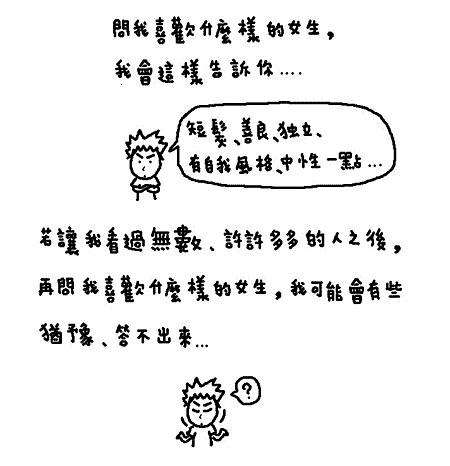 問我喜歡什麼樣的女生，
我會這樣告訴你....
短髮、善良、独立、
有自我風格、中性一點...
若讓我看過無數、許許多多的人之後，
再問我喜歡什麼樣的女生，我可能會有些
猶豫、答不出來...
?